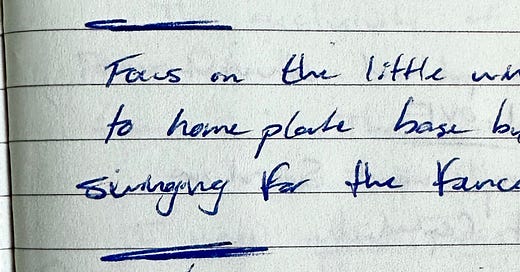 Focus on the little
to home plate base
swinging for the